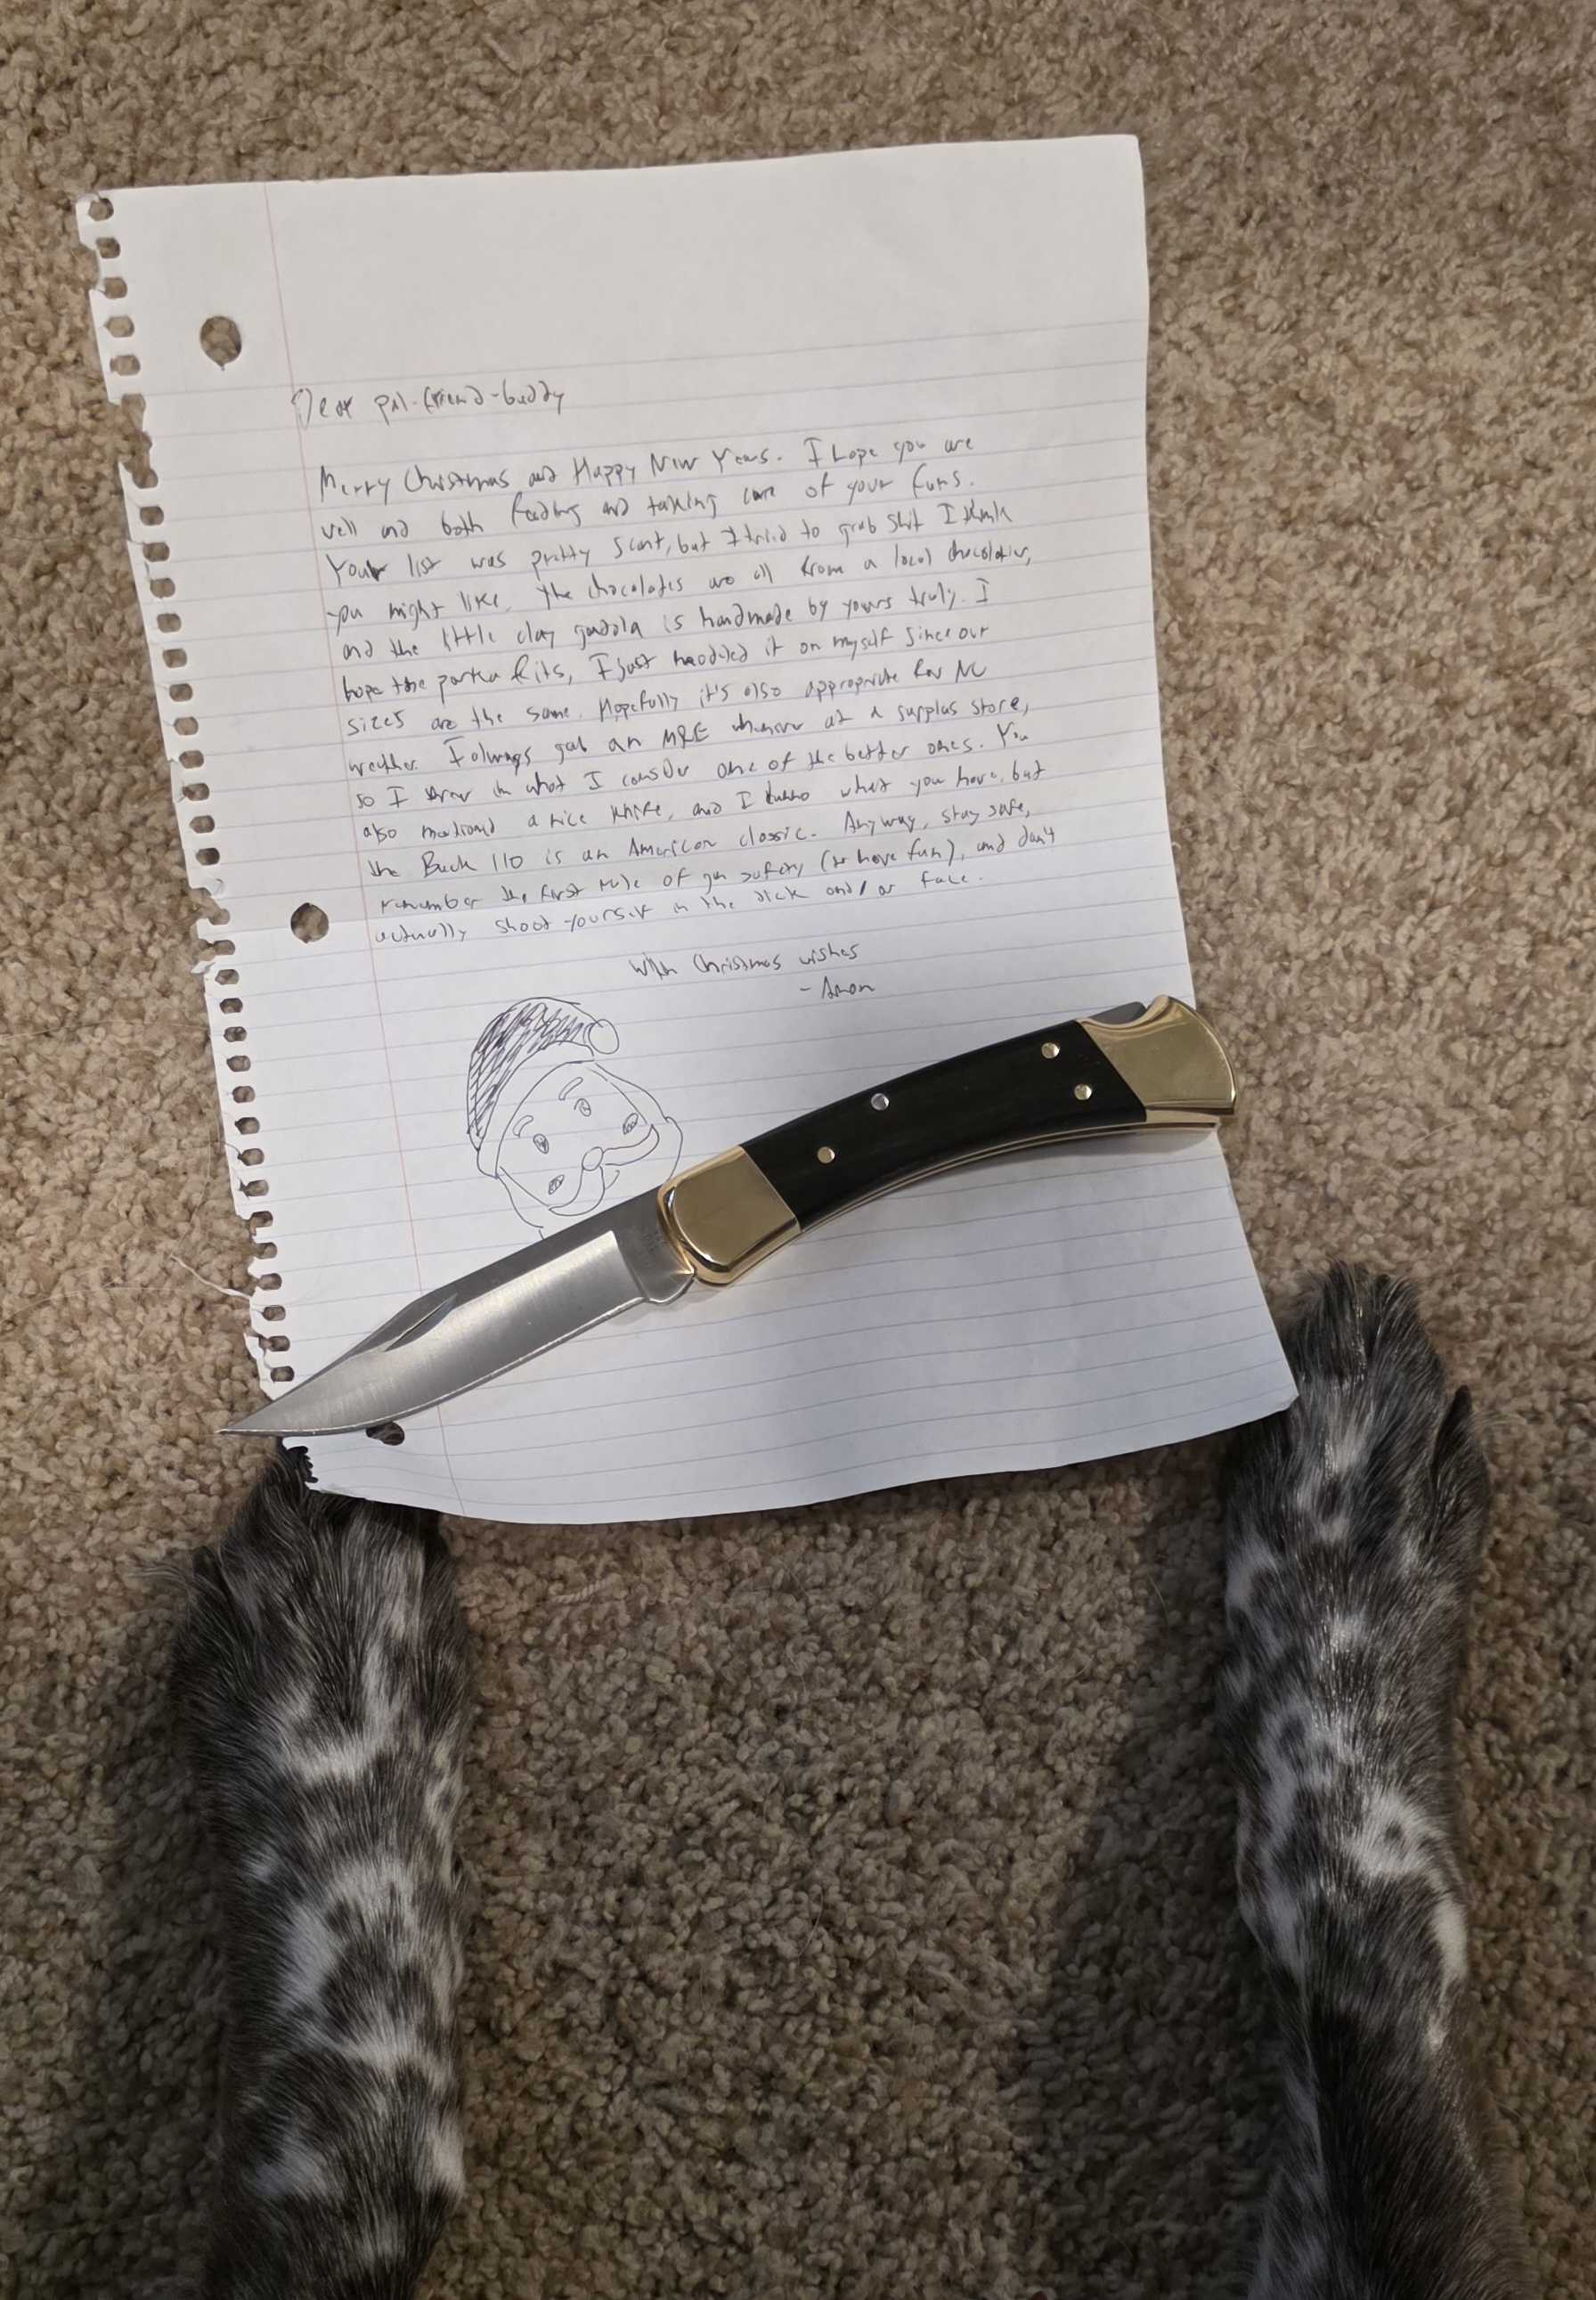 Dear pal-friend-buddy
Merry Christmas and Happy New Years. I hope you are
well and both feeding and taking care of your furs.
Your list was pretty scant, but I tried to grab shit I think
you might like. The chocolates are all from a local chocolatier,
and the little clay gondola is handmade by yours truly. I
hope the parka fits, I just modeled it on myself since our
sizes are the same. Hopefully it's also appropriate for NC
weather. I always grab an MRE whenever at a surplus store,
so I threw in what I consider one of the better ones. You
also mentioned a nice knife, and I dunno what you have, but
the Buck 110 is an American classic. Anyway, stay safe,
remember the first rule of gun safety (to have fun), and don't
actually shoot yourself in the dick and/or face.
With Christmas wishes